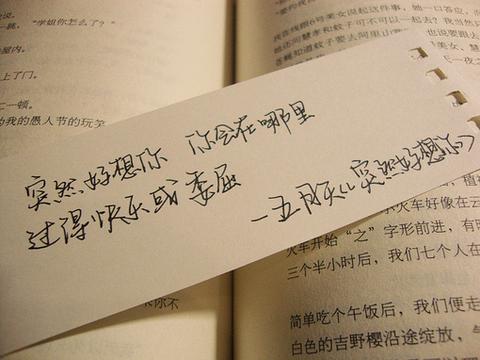 说。
跳，“学姐你怎么了？”
屋内。
上了门。
一顿。
为我的愚人节的玩笑
突然好想你 你会在哪里
过得快乐或委屈
—五月天《突然好想你》
火车好像在云
火车开始“之”字形前进，有时
三个半小时后，我们七个人在
简单吃个午饭后，我们便走
白色的吉野樱沿途绽放，气